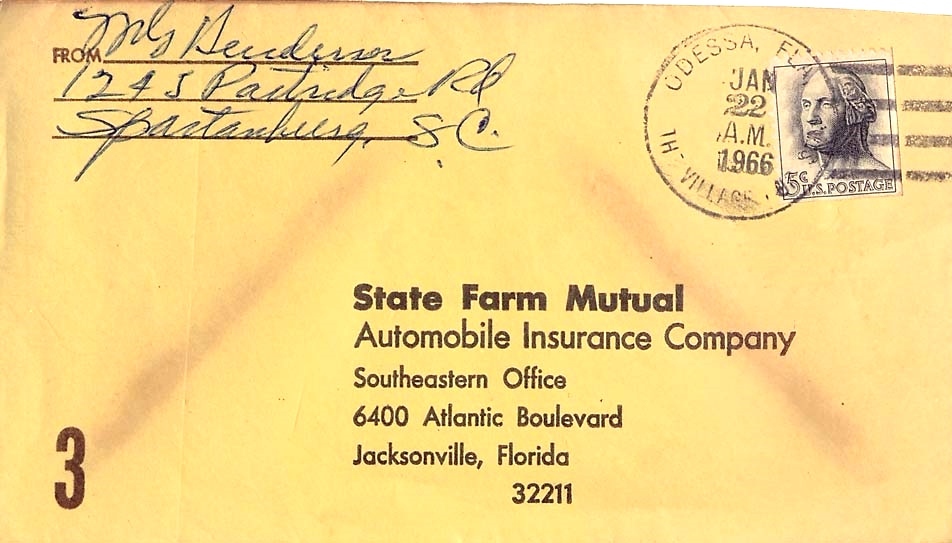 FROM M G Henderson
1243 Partridge Rd
Spartanburg, S.C.
ODESSA, FLA
JAN
22
A.M.
1966
VILLAGE
5¢ U.S. POSTAGE
State Farm Mutual
Automobile Insurance Company
Southeastern Office
6400 Atlantic Boulevard
Jacksonville, Florida
32211
3